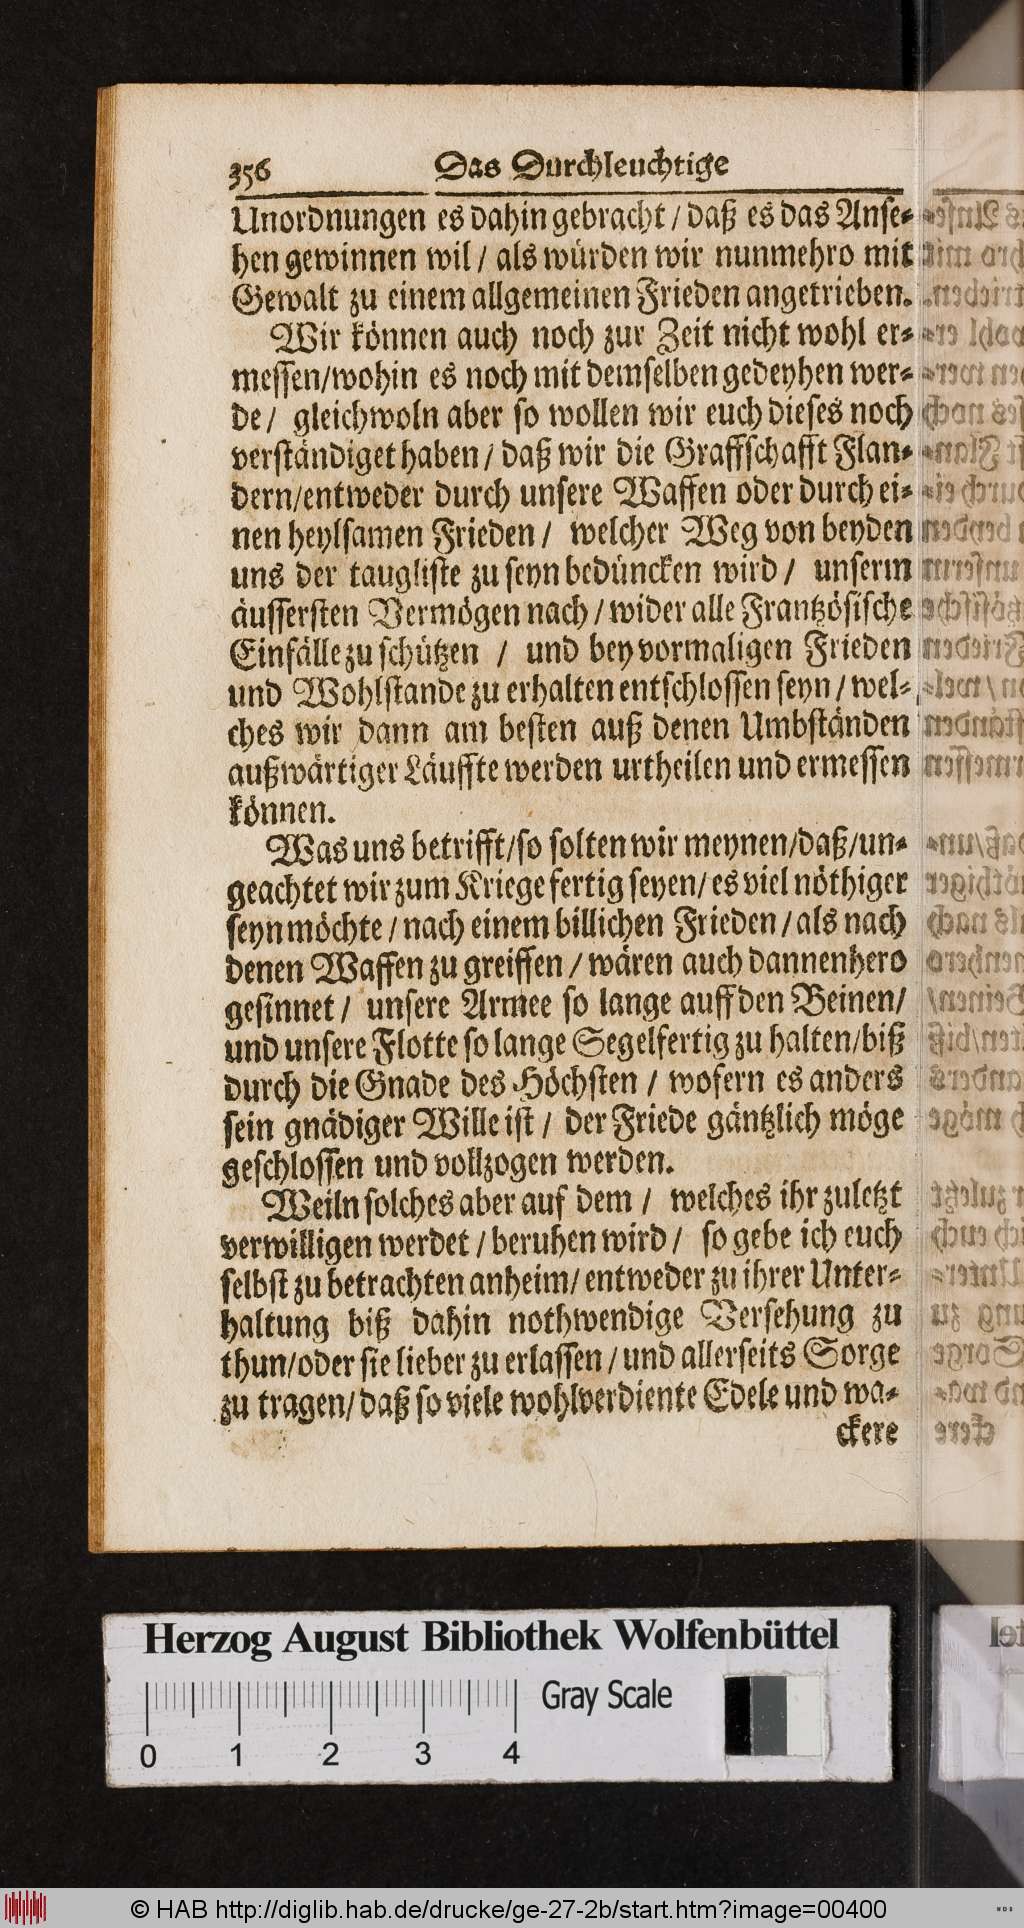 356 Das Durchleuchtige
Unordnungen es dahin gebracht / daß es das Anse-
hen gewinnen wil / als würden wir nunmehro mit
Gewalt zu einem allgemeinen Frieden angetrieben.
Wir können auch noch zur Zeit nicht wohl er-
messen/wohin es noch mit demselben gedeyhen wer-
de / gleichwoln aber so wollen wir euch dieses noch
verständiget haben / daß wir die Graffschafft Flan-
dern/entweder durch unsere Waffen oder durch ei-
nen heylsamen Frieden / welcher Weg von beyden
uns der taugliste zu seyn bedüncken wird / unserm
äussersten Vermögen nach / wider alle Frantzösische
Einfälle zu schützen / und bey vormaligen Frieden
und Wohlstande zu erhalten entschlossen seyn / wel-
ches wir dann am besten auß denen Umbständen
außwärtiger Läuffte werden urtheilen und ermessen
können.
Was uns betrifft/so solten wir meynen/daß/un-
geachtet wir zum Kriege fertig seyen/ es viel nöthiger
seyn möchte / nach einem billichen Frieden / als nach
denen Waffen zu greiffen / wären auch dannenhero
gesinnet / unsere Armee so lange auff den Beinen/
und unsere Flotte so lange Segelfertig zu halten/biß
durch die Gnade des Höchsten / wofern es anders
sein gnädiger Wille ist / der Friede gäntzlich möge
geschlossen und vollzogen werden.
Weiln solches aber auf dem / welches ihr zuletzt
verwilligen werdet / beruhen wird / so gebe ich euch
selbst zu betrachten anheim/ entweder zu ihrer Unter-
haltung biß dahin nothwendige Versehung zu
thun/oder sie lieber zu erlassen / und allerseits Sorge
zu tragen/ daß so viele wohlverdiente Edele und wa-
ckere
Herzog August Bibliothek Wolfenbüttel
Gray Scale
0 1 2 3 4
© HAB http://diglib.hab.de/drucke/ge-27-2b/start.htm?image=00400